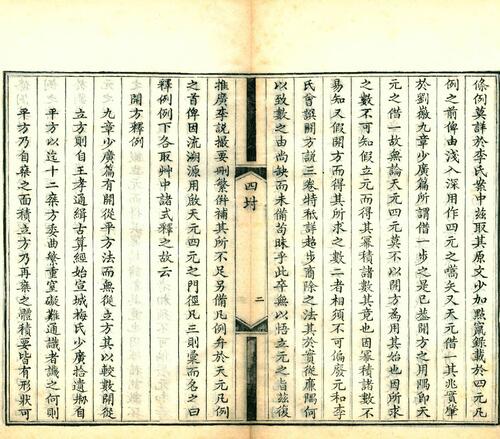 條例莫詳於李氏案中茲取其原文少加點竄錄載於四元凡
例之首俾由淺入深用作四元之嚆矢又天元借一其兆實肇
於劉徽九章少廣篇所謂借一步之是已葢開方之用隅卽天
元之借一故無論天元四元莫不以開方為用其始也因所求
之數不可知假立元而得其冪積諸數其竟也因冪積諸數不
易知又假開方而得其所求之數二者相須不可偏廢元和李
氏會譔開方說三卷特秪詳超步商除之法其於實從廉隅何
以致數之由尚缺而未備苟昧乎此卒無以悟立元之㫖茲復
推廣李說撮要刪繁併補其所不足另備凡例弁於天元凡例
之首俾因流溯源用啟天元四元之門徑凡三則彙而名之曰
釋例例下各取艸中諸式釋之故云
開方釋例
九章少廣篇有開從平方法而無從立方其以較數開從
立方則自王孝通緝古算經始宣城梅氏少廣拾遺剏自
平方以迄十二乘方委曲繁重窒礙難通識者譏之何則
平方乃自乘之面積立方乃再乘之體積要皆有形狀可
四艸
二